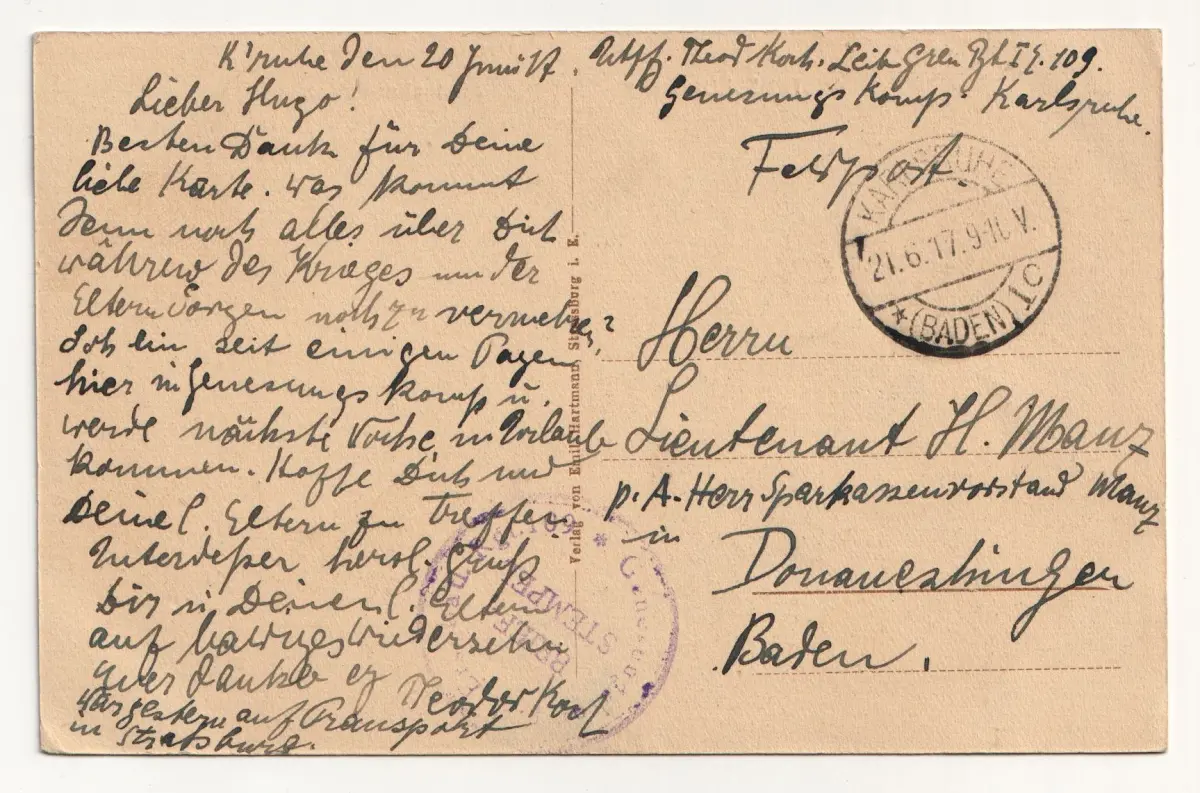 K'ruhe den 20 Juni 17.
Lieber Hugo!
Besten Dank für Deine
liebe Karte. Was kommt
denn noch alles über Dich
während des Krieges um der
Eltern Sorgen noch zu vermehren?
Ich bin seit einigen Tagen
hier in Genesungskomp u.
werde nächste Woche in Urlaub
kommen. Hoffe Dich und
Deine l. Eltern zu treffen
Unterdeßen herzl. Gruß
Dir u. Deinen l. Eltern
auf baldiges Wiedersehn
Theodor Koch
war gestern auf Transport
in Straßburg.
Uffz. Theod Koch. Leib Gren Rgt 109.
Genesungs Komp. Karlsruhe.
Feldpost
KARLSRUHE
21.6.17.9-10V.
* (BADEN) 1C
Herrn
Lieutenant H. Manz
p. A. Herr Sparkassenvorstand Manz
in
Donaueshingen
Baden.
Verlag von Emil Hartmann, Strassburg i. E.
STEMPEL